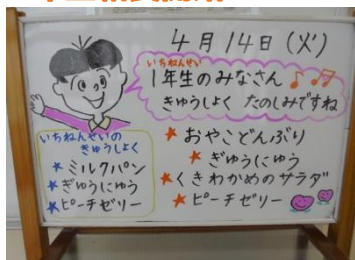 4月14日(火)
いちねんせい
1年生のみなさん♪♫
きゅうしょく たのしみですね
いちねんせいの
きゅうしょく
★ミルクパン
★ぎゅうにゅう
★ピーチゼリー
★おやこどんぶり
★ぎゅうにゅう
★くきわかめのサラダ
★ピーチゼリー